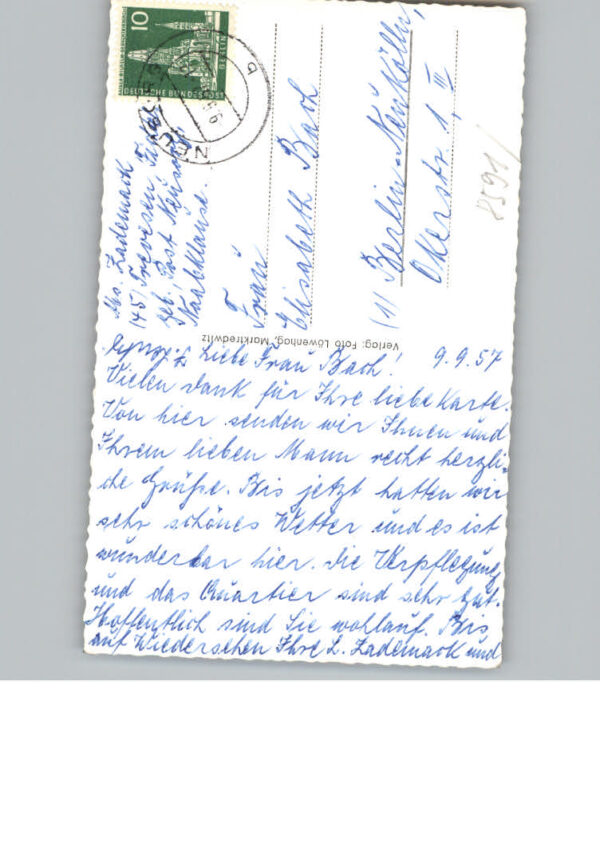 10
DEUTSCHE BUNDESPOST
BERLIN
NEU
Abs. Zademack
(145) Trevesen
Post
Naabklause.
Frau
Elisabeth Bach
(1) Berlin-Neukölln,
Okerstr. 1, III
8591/
Verlag: Foto Löwenhag, Marktredwitz
Liebe Frau Bach! 9.9.57
Vielen Dank für Ihre liebe Karte.
Von hier senden wir Ihnen und
Ihrem lieben Mann recht herzli-
che Grüße. Bis jetzt hatten wir
sehr schönes Wetter und es ist
wunderbar hier. Die Verpflegung
und das Quartier sind sehr gut.
Hoffentlich sind Sie wohlauf. Bis
auf Wiedersehen Ihre L. Zademack und